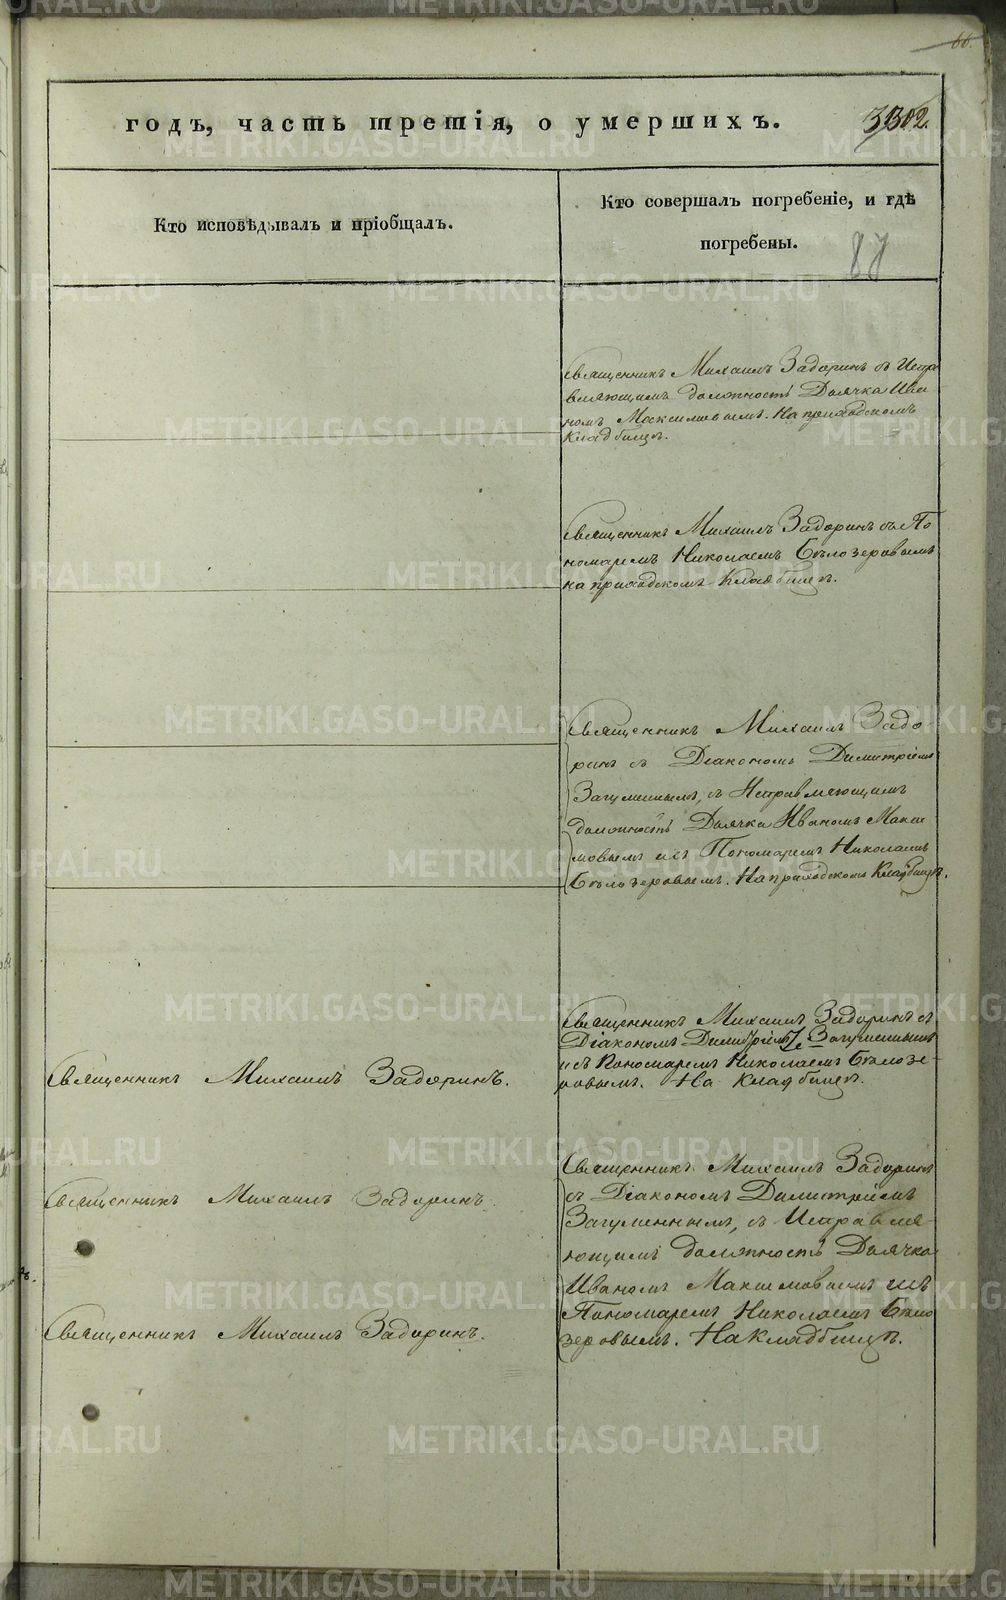 66.
годъ, часть третія, о умершихъ.
3302.
Кто исповѣдывалъ и пріобщалъ.
Кто совершалъ погребеніе, и гдѣ
погребены.
88
Священникъ Михаилъ Задоринъ съ Испра
вляющимъ должность Дьячка Ива
номъ Максимовымъ. На приходскомъ
Кладбищѣ.
Священникъ Михаилъ Задоринъ съ По
номаремъ Николаемъ Бѣлозеровымъ
на приходскомъ Кладбищѣ.
Священникъ Михаилъ Задо-
ринъ съ Діакономъ Димитріемъ
Загуменнымъ, съ Исправляющимъ
должность Дьячка Иваномъ Макси
мовымъ и съ Пономаремъ Николаемъ
Бѣлозеровымъ. На приходскомъ Кладбищѣ.
Священникъ Михаилъ Задоринъ.
Священникъ Михаилъ Задоринъ съ
Діакономъ Димитріемъ Загуменнымъ
и съ Пономаремъ Николаемъ Бѣлозе-
ровымъ. На Кладбищѣ.
Священникъ Михаилъ Задоринъ.
Священникъ Михаилъ Задоринъ.
Священникъ Михаилъ Задоринъ
съ Діакономъ Димитріемъ
Загуменнымъ, съ Исправля-
ющимъ должность Дьячка
Иваномъ Максимовымъ и съ
Пономаремъ Николаемъ Бѣло
зеровымъ. На Кладбищѣ.
METRIKI.GASO-URAL.RU